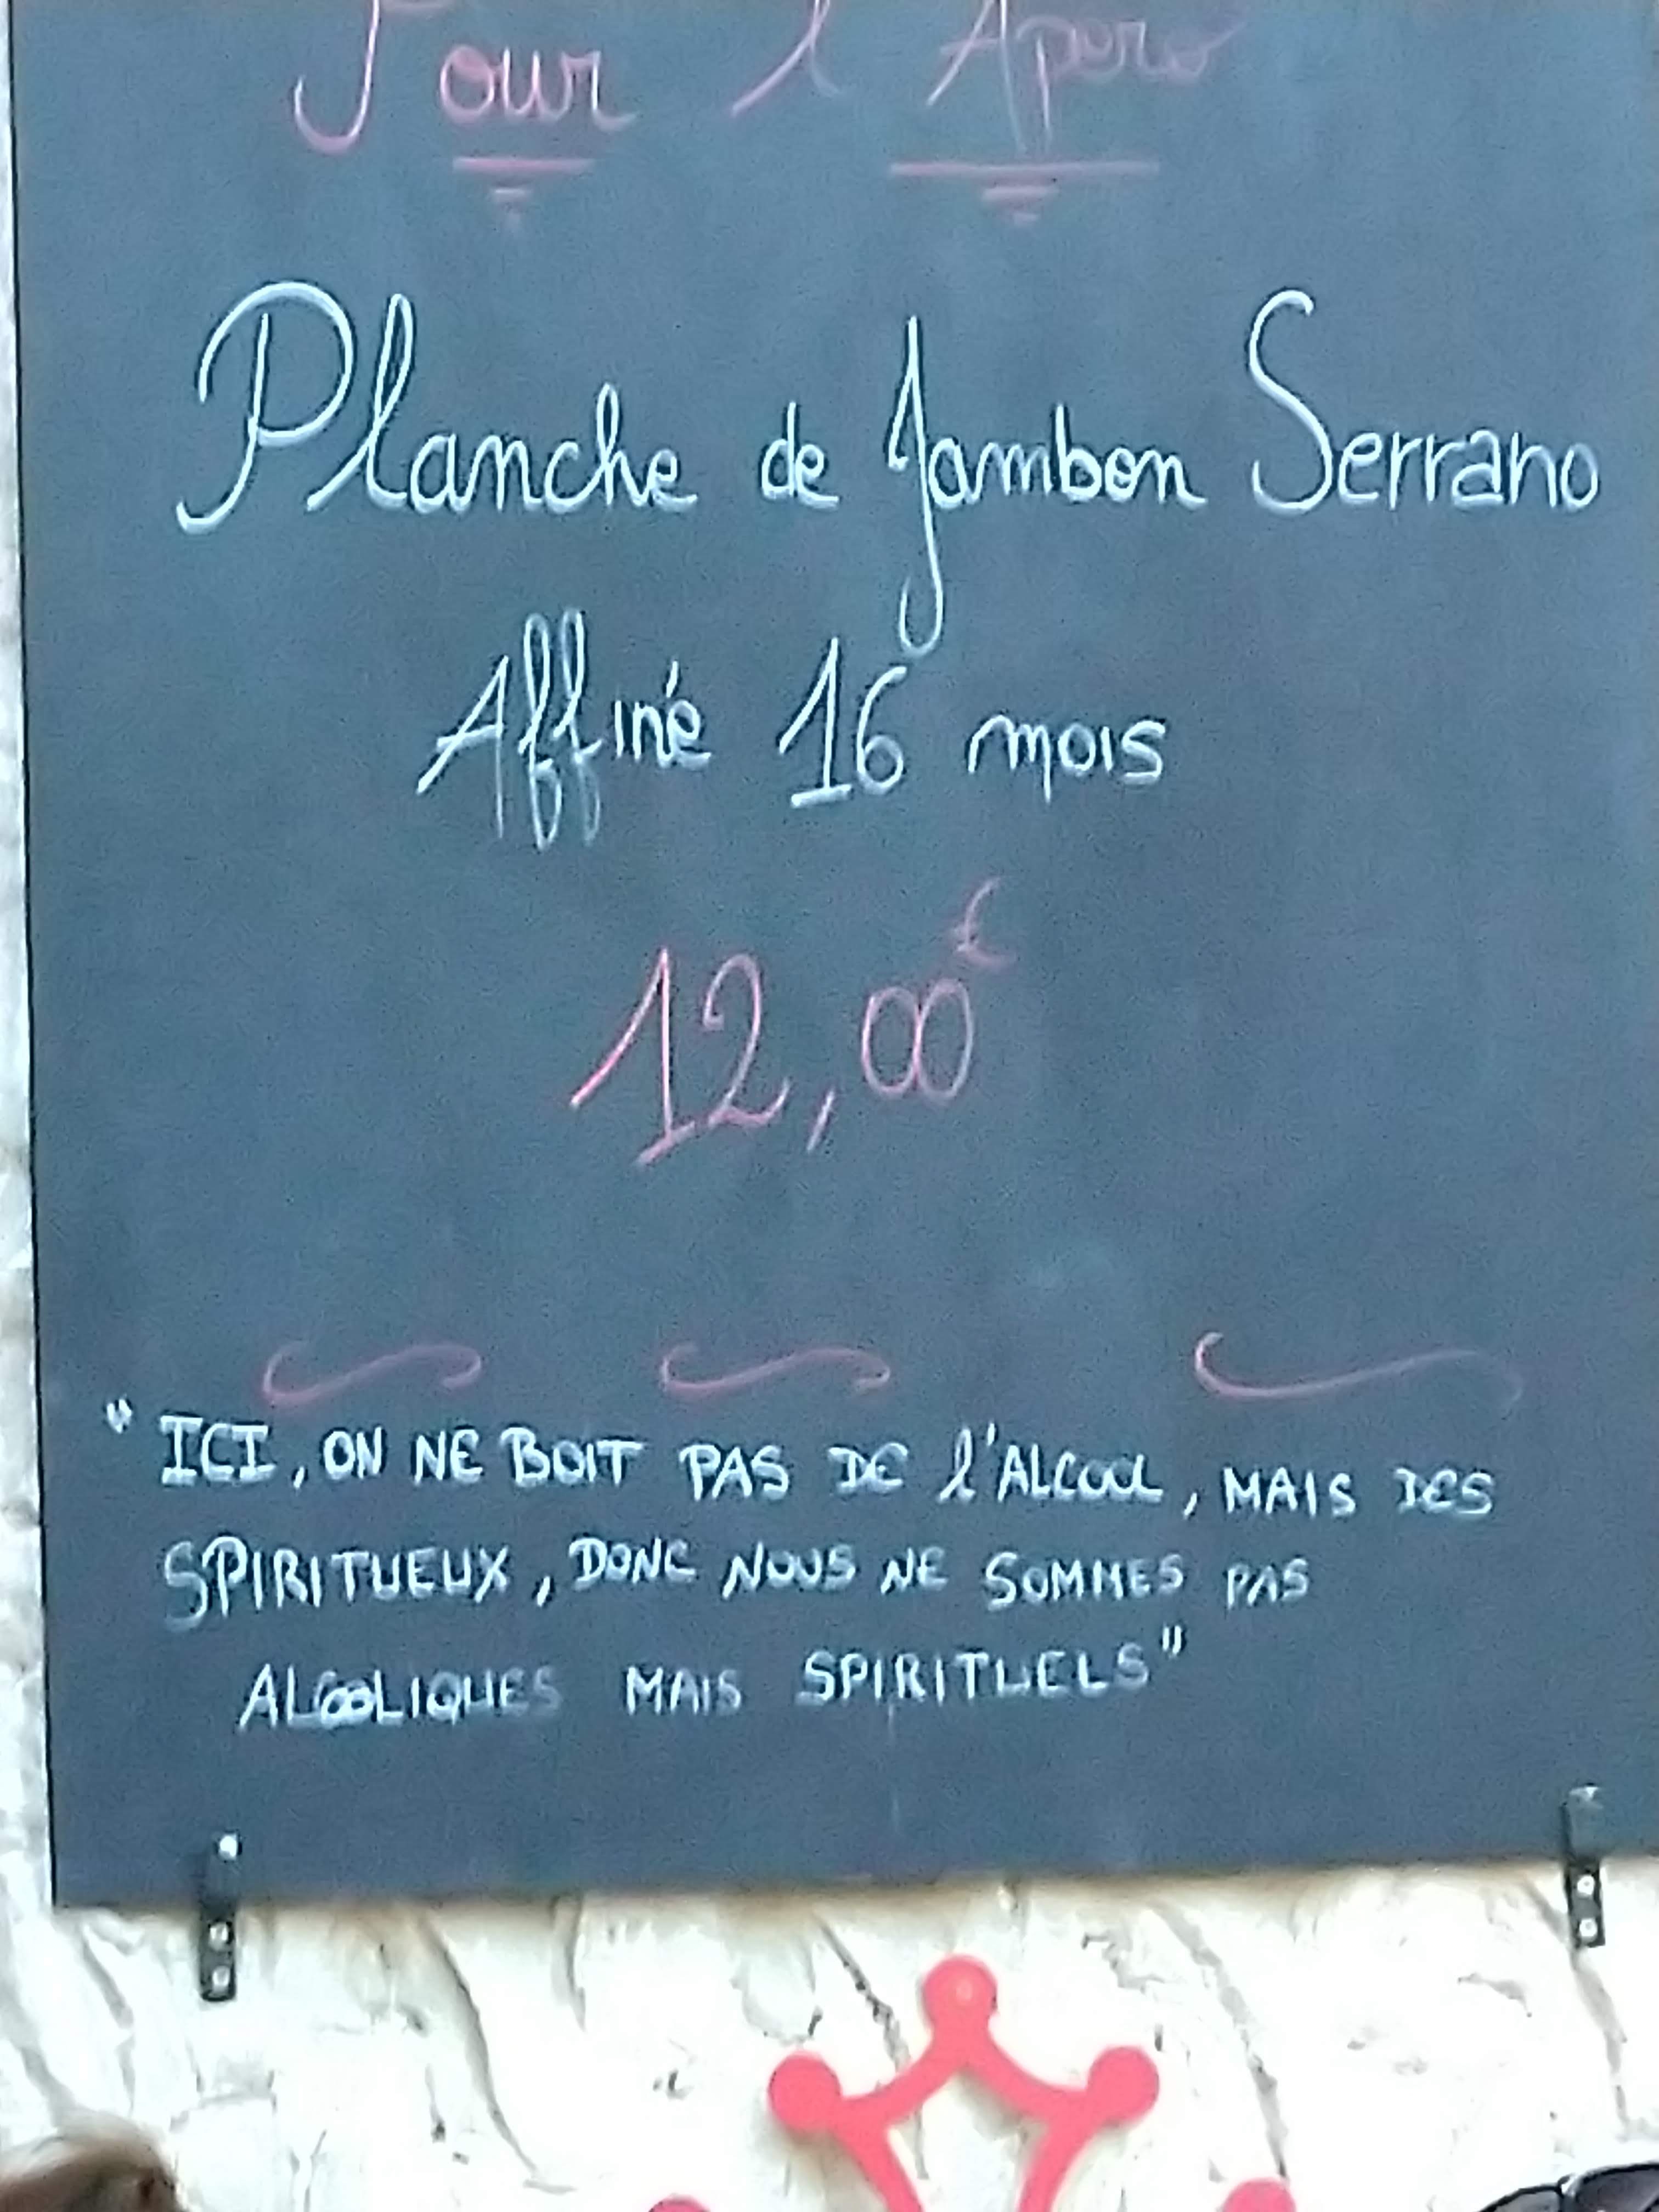 Pour l'Apero
Planche de Jambon Serrano
Affiné 16 mois
12,00€
"ICI, ON NE BOIT PAS DE l'ALCOOL, MAIS DES
SPIRITUEUX, DONC NOUS NE SOMMES PAS
ALCOOLIQUES MAIS SPIRITUELS"